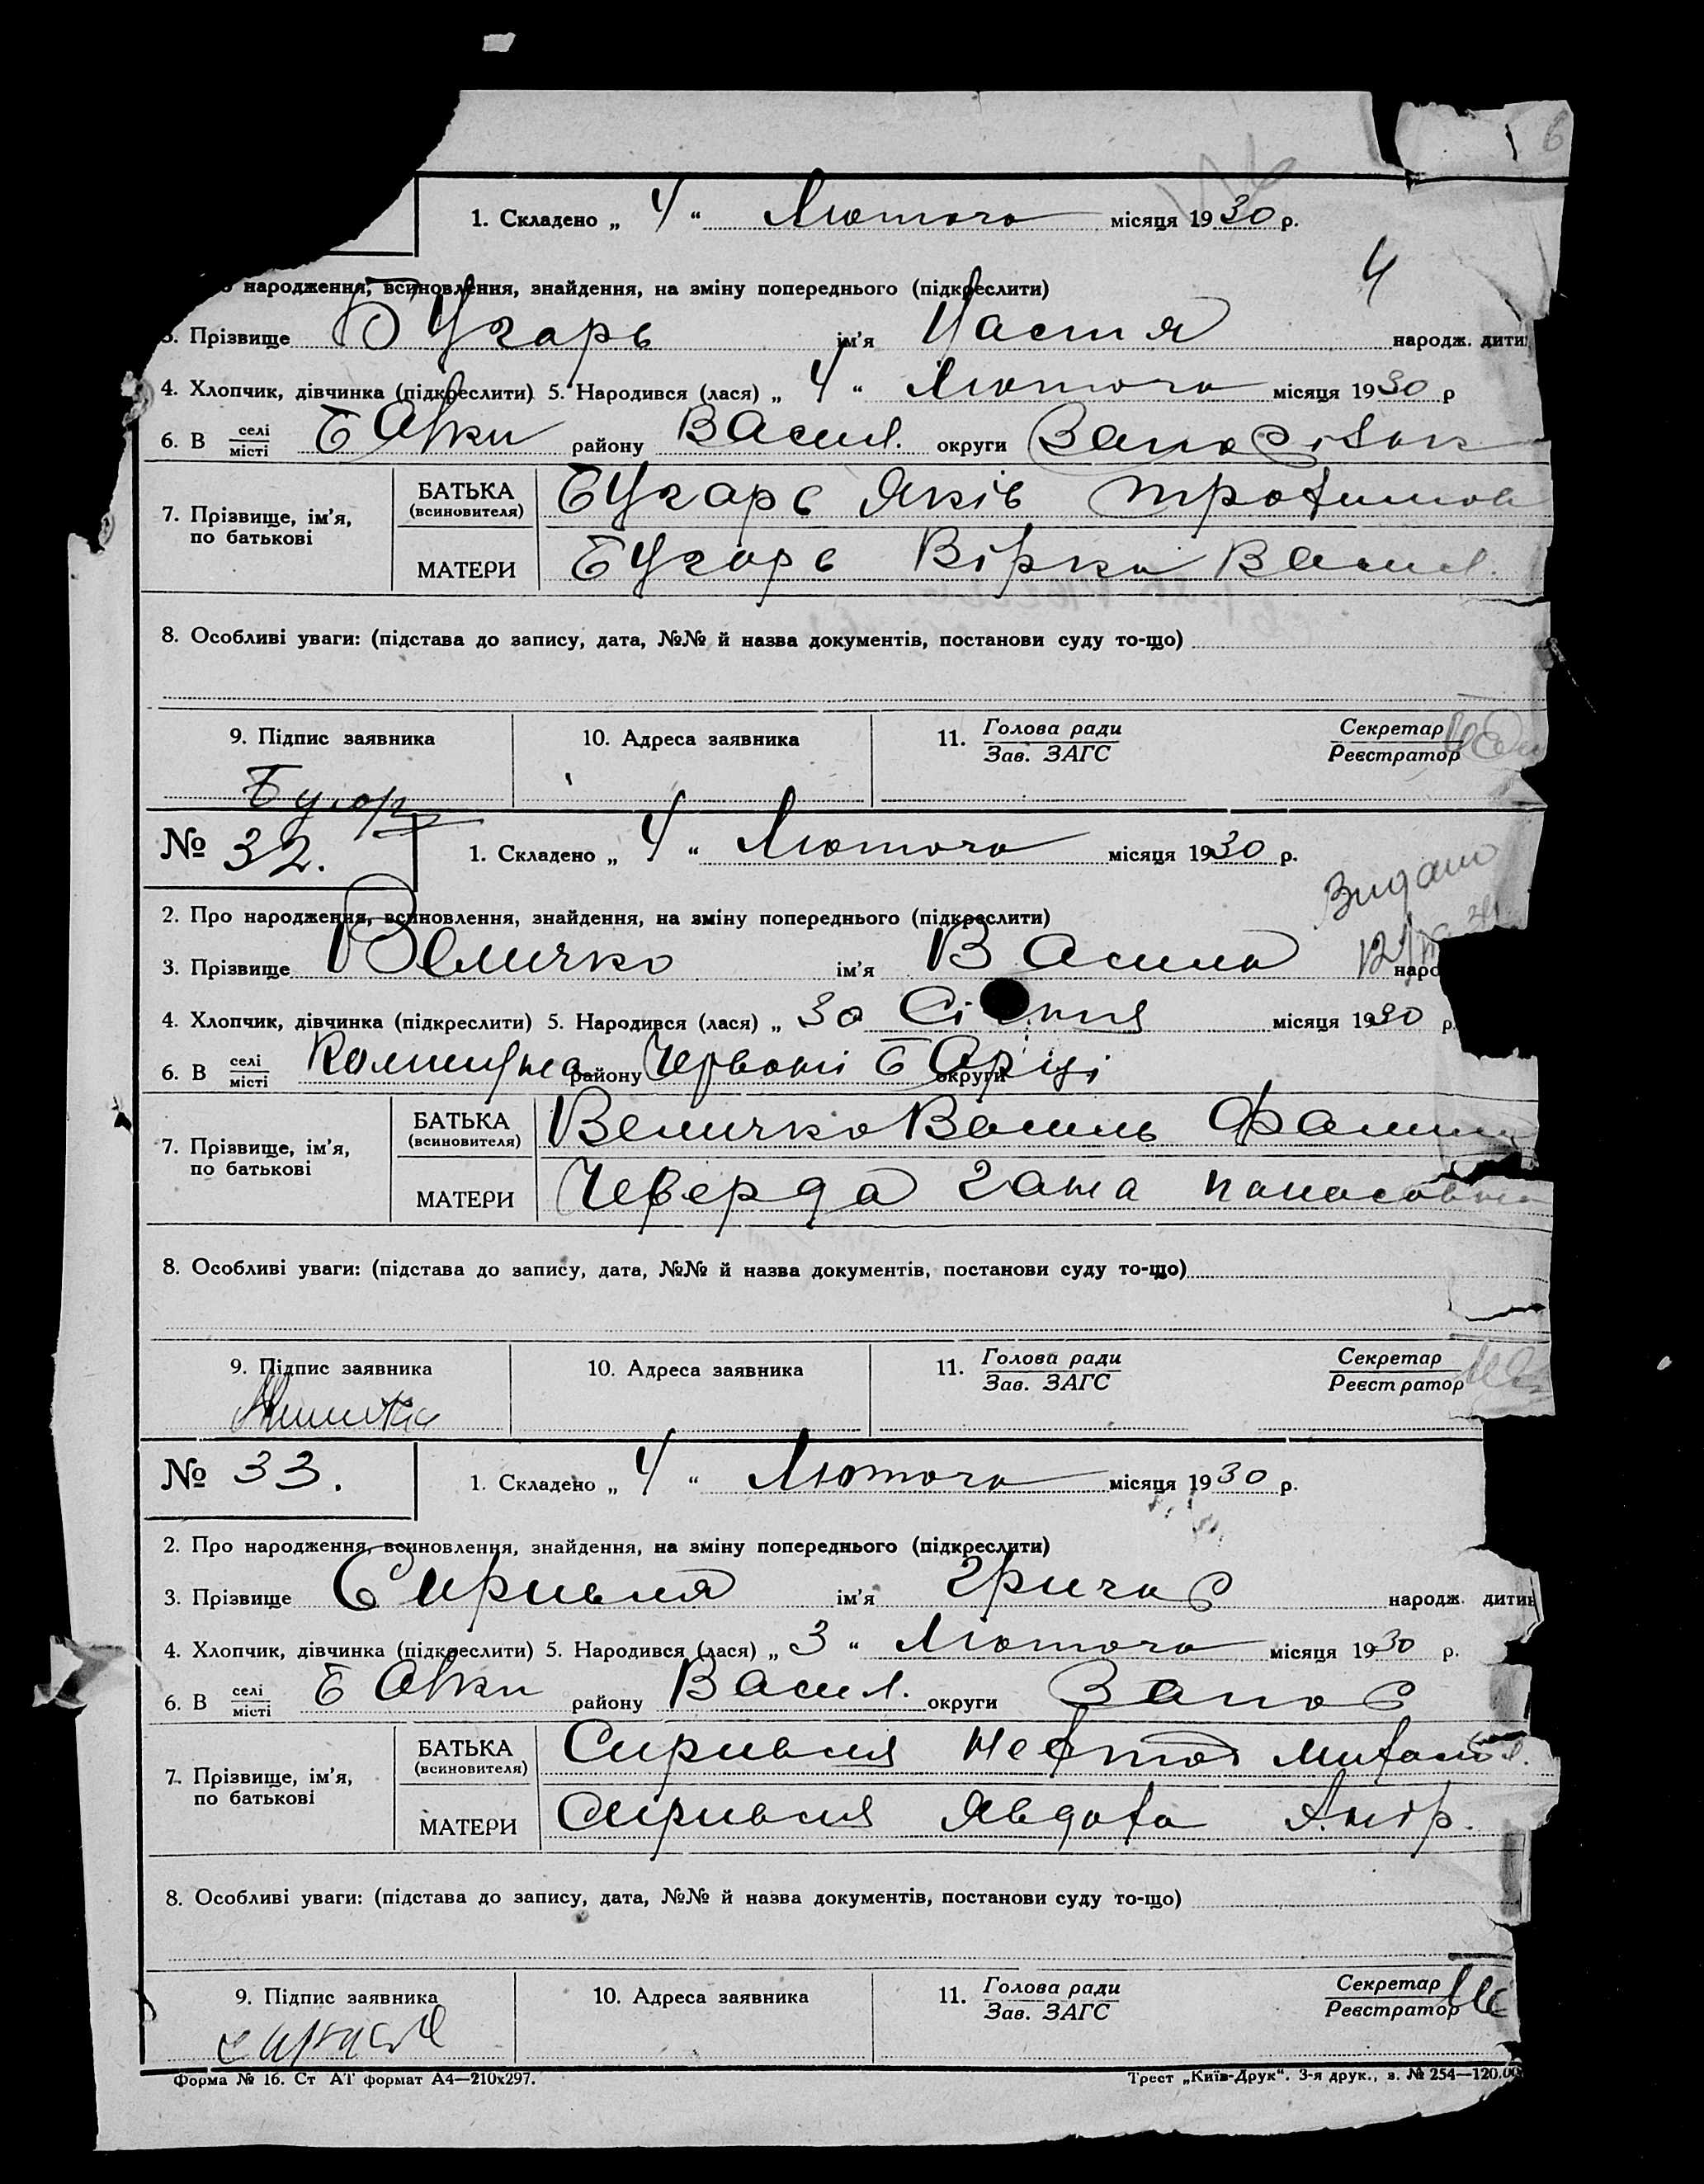 6
1. Складено „ 4 “ Лютого місяця 1930 р.
народження, всиновлення, знайдення, на зміну попереднього (підкреслити)
4
3. Прізвище Бугарь ім'я Настя народж. дити
4. Хлопчик, дівчинка (підкреслити) 5. Народився (лася) „ 4 “ Лютого місяця 1930 р
6. В селі місті Балки району Васил. округи
7. Прізвище, ім'я, по батькові
БАТЬКА (всиновителя) Бугарь Яків Трофимов
МАТЕРИ Бугарь Вірка Васил.
8. Особливі уваги: (підстава до запису, дата, №№ й назва документів, постанови суду то-що)
9. Підпис заявника 10. Адреса заявника 11. Голова ради Зав. ЗАГС Секретар Реєстратор
Бугарь
№ 32. 1. Складено „ 4 “ Лютого місяця 1930 р.
Видано
2. Про народження, всиновлення, знайдення, на зміну попереднього (підкреслити)
3. Прізвище Величко ім'я Василь наро
4. Хлопчик, дівчинка (підкреслити) 5. Народився (лася) „ 30 Січня місяця 1930 р.
6. В селі місті району Червоні округи
7. Прізвище, ім'я, по батькові
БАТЬКА (всиновителя) Величко Василь
МАТЕРИ Чеверда Гана Панасовна
8. Особливі уваги: (підстава до запису, дата, №№ й назва документів, постанови суду то-що)
9. Підпис заявника 10. Адреса заявника 11. Голова ради Зав. ЗАГС Секретар Реєстратор
№ 33. 1. Складено „ 4 “ Лютого місяця 1930 р.
2. Про народження, всиновлення, знайдення, на зміну попереднього (підкреслити)
3. Прізвище Сиривля ім'я Григор народж. дитин
4. Хлопчик, дівчинка (підкреслити) 5. Народився (лася) „ 3 “ Лютого місяця 1930 р.
6. В селі місті Балки району Васил. округи Запор
7. Прізвище, ім'я, по батькові
БАТЬКА (всиновителя) Сиривля Михайл.
МАТЕРИ Сиривля Явдоха Андр.
8. Особливі уваги: (підстава до запису, дата, №№ й назва документів, постанови суду то-що)
9. Підпис заявника 10. Адреса заявника 11. Голова ради Зав. ЗАГС Секретар Реєстратор
Форма № 16. Ст АТ формат А4—210х297. Трест „Київ-Друк“. 3-я друк., з. № 254—120.00